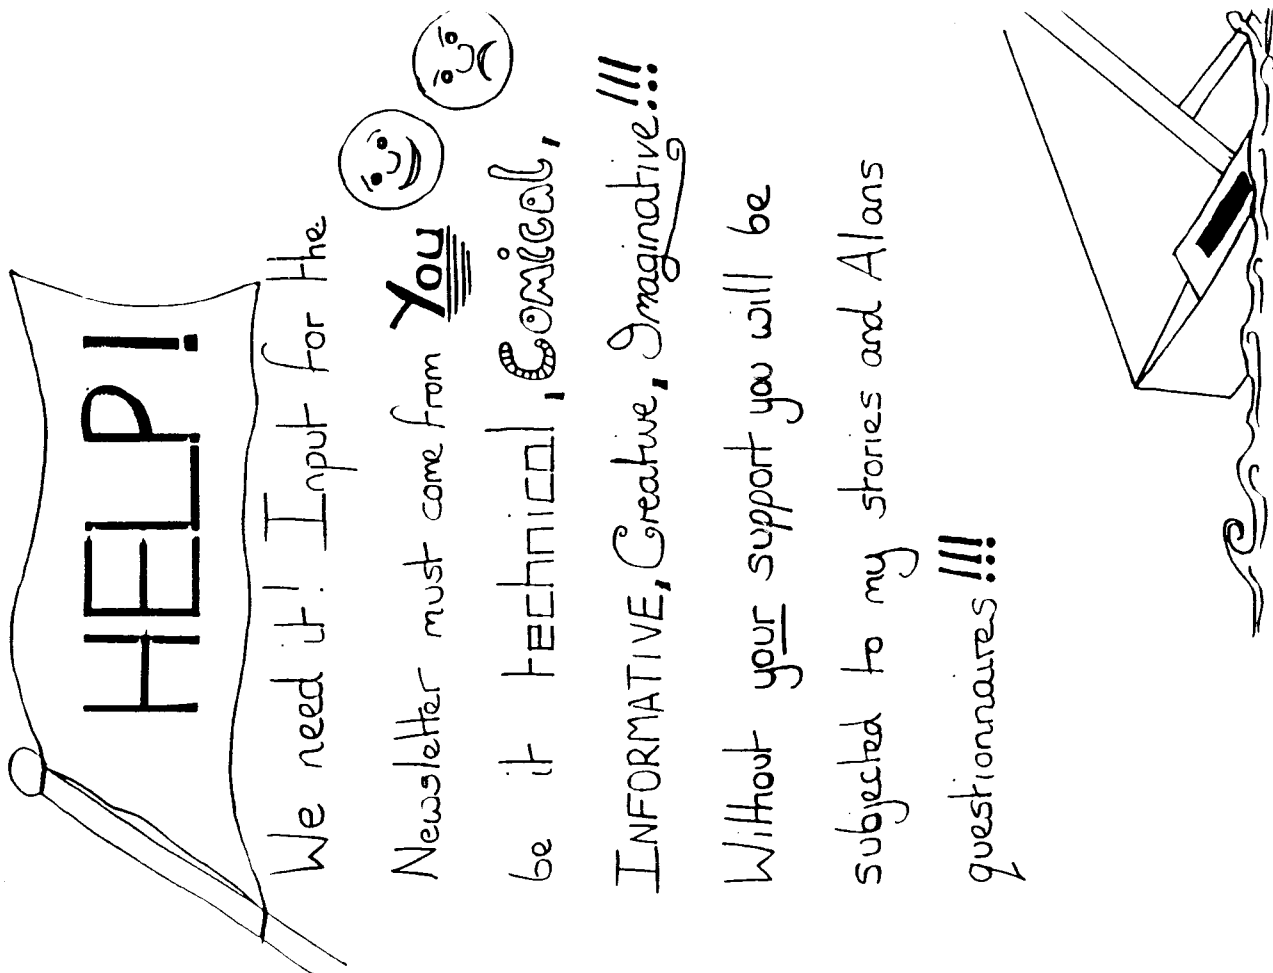 HELP!
We need it! Input for the
Newsletter must come from You
be it tECHNICAL, Comical,
INFORMATIVE, Creative, Imaginative!!!
Without your support you will be
subjected to my stories and Alans
questionnaires!!!